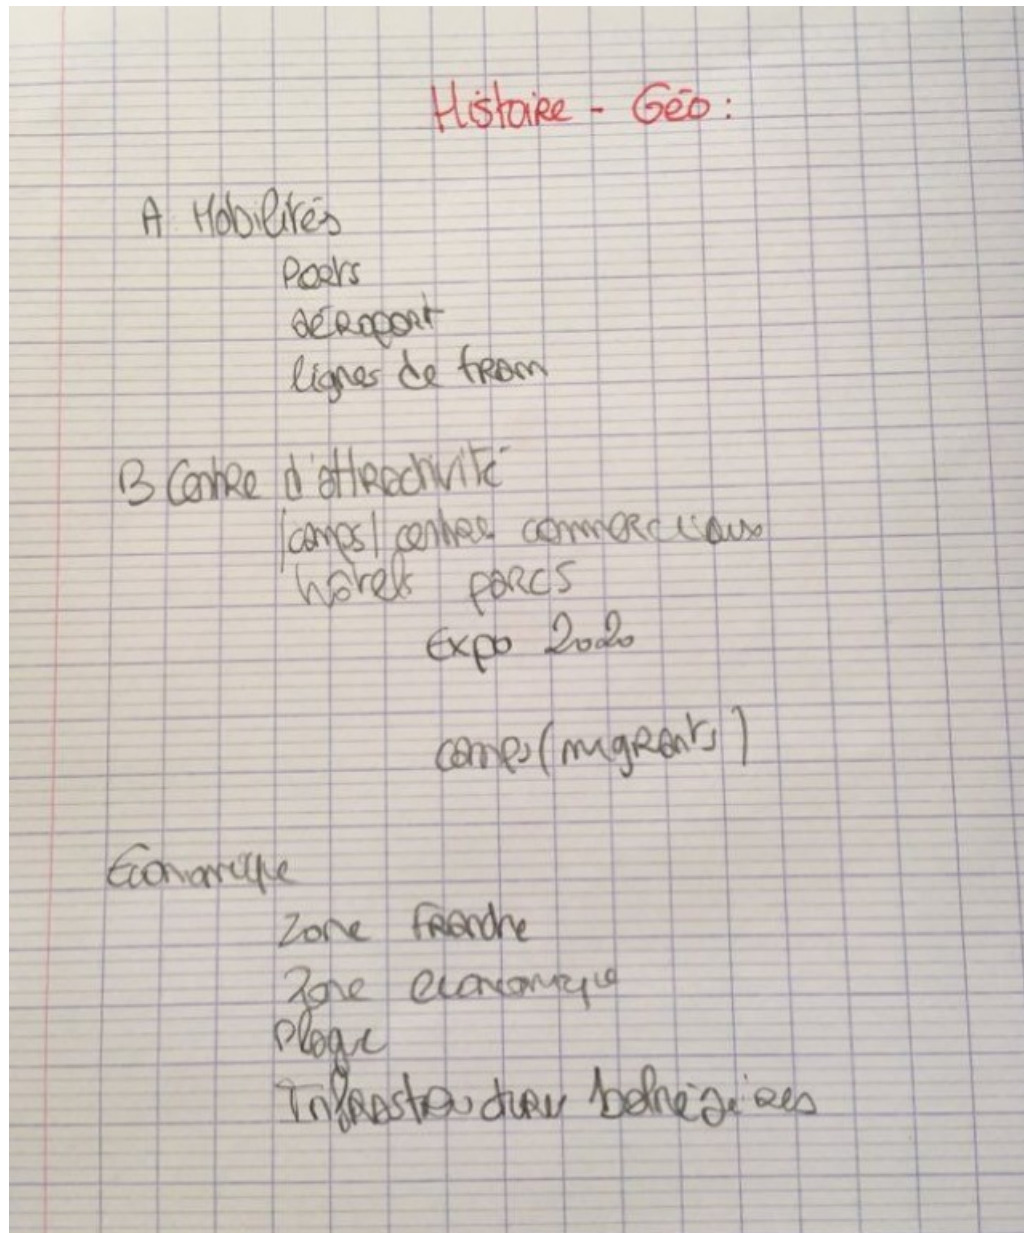 Histoire - Géo :
A Mobilités
Ports
aéroport
lignes de tram
B Centre d'attractivité
/camps/ centres commerciaux
hôtels parcs
Expo 2020
camps (migrants)
Économique
Zone franche
Zone economique
Plage
Infrastructures